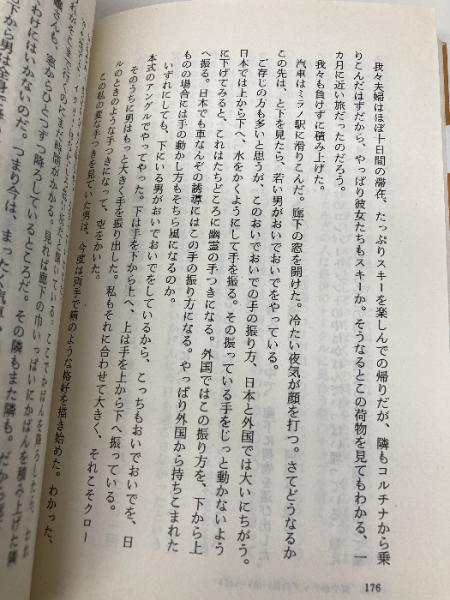 我々夫婦はほぼ十日間の滞在、たっぷりスキーを楽しんでの帰りだが、隣もコルチナから乗
りこんだはずだから、やっぱり彼女たちもスキーか。そうなるとこの荷物を見てもわかる、一
カ月に近い旅だったのだろう。
我々も負けずに積み上げた。
汽車はミラノ駅に滑りこんだ。廊下の窓を開けた。冷たい夜気が顔を打つ。さてどうなるか
この先は、と下を見たら、若い男がおいでおいでをやっている。
ご存じの方も多いと思うが、このおいでおいでの手の振り方、日本と外国では大いにちがう。
日本では上から下へ、水をかくようにして手を振る。その振っている手をじっと動かないよう
に下げてみると、これはたちどころに幽霊の手つきになる。外国ではこの振り方を、下から上
へ振る。日本でも車なんぞの誘導にはこの手の振り方になる。やっぱり外国から持ちこまれた
ものの場合には手の動かし方もそちら風になるのか。
いずれにしても、下にいる男がおいでおいでをしているから、こっちもおいでおいでを、日
本式のアングルでやってやった。下は手を下から上へ、上は手を上から下へ振っている。
そのうちに男はもっと大きく手を振り出した。私もそれに合わせて大きく、それこそクロー
ルのときのような手つきになって、空をかいた。
この私の変な手つきを見ていた男は、今度は両手で箱のような格好を描き始めた。わかった、
176